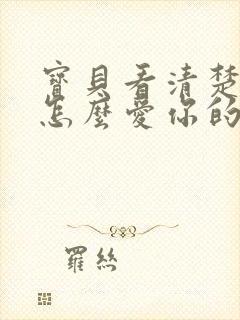 寶貝看清楚
怎麼愛你的
羅絲